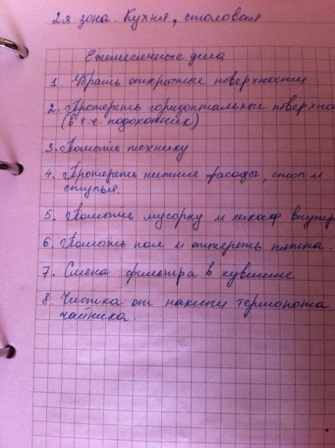 2я зона. Кухня, столовая
Ежемесячные дела
1. Убрать открытые поверхности
2. Протереть горизонтальные поверхно
(в т.ч. подоконник)
3. Помыть технику
4. Протереть нижние фасады, стол и
стулья.
5. Помыть мусорку и шкаф внутр
6. Помыть пол и оттереть пятна.
7. Смена фильтра в кувшине
8. Чистка от накипи термопота
чайника.